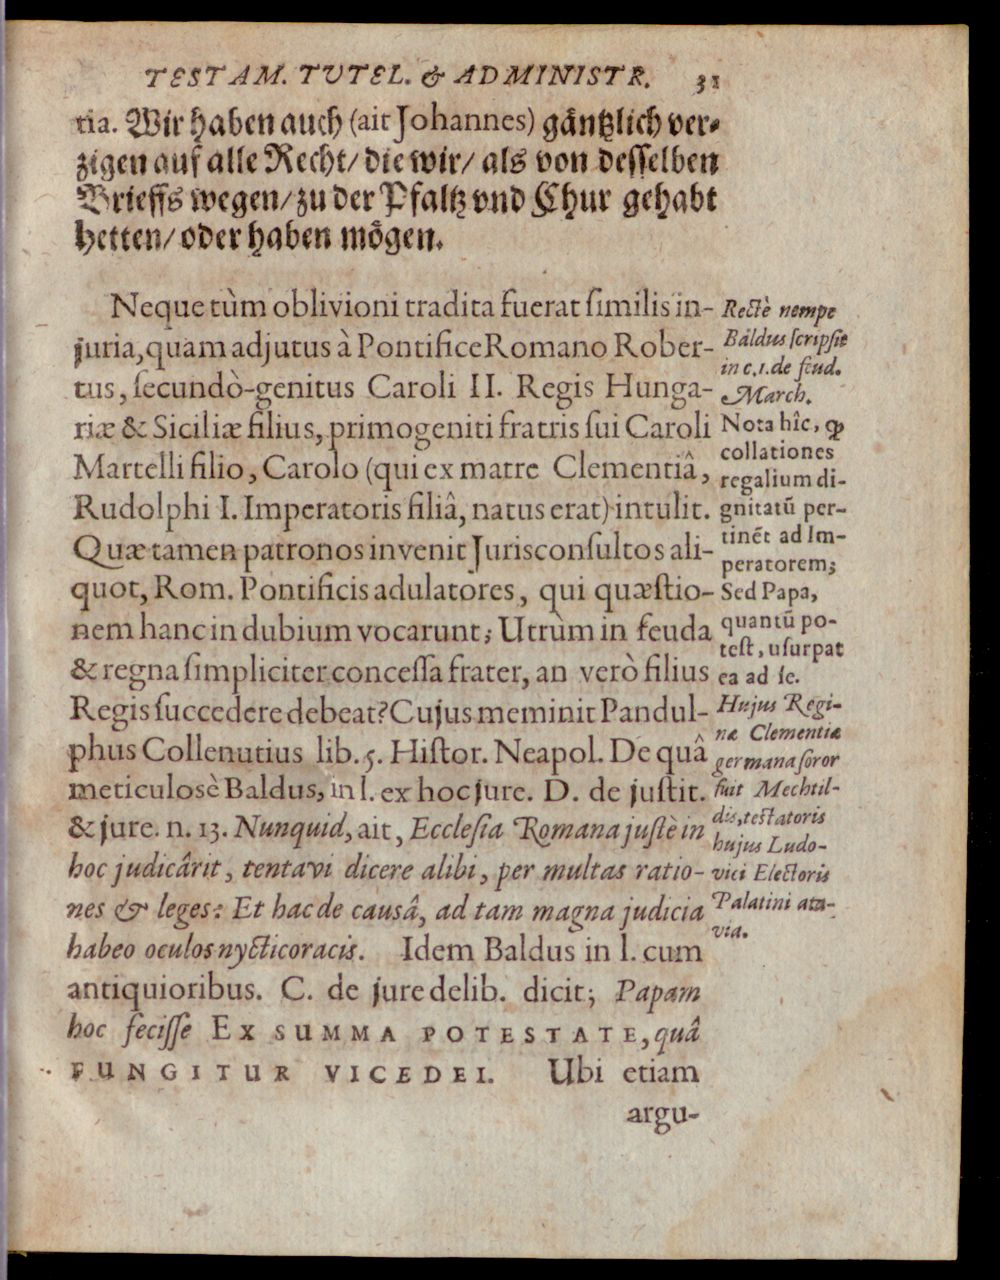 TESTAM. TVTEL. & ADMINISTR. 31
ria. Wir haben auch (ait Johannes) gåntzlich ver-
zigen auf alle Recht/ die wir/ als von desselben
Brieffs wegen/ zu der Pfaltz vnd Chur gehabt
hetten/ oder haben mögen.
Neque tùm oblivioni tradita fuerat similis in-
juria, quam adjutus à Pontifice Romano Rober-
tus, secundò-genitus Caroli II. Regis Hunga-
riæ & Siciliæ filius, primogeniti fratris sui Caroli
Martelli filio, Carolo (qui ex matre Clementiâ,
Rudolphi I. Imperatoris filiâ, natus erat) intulit.
Quæ tamen patronos invenit Jurisconsultos ali-
quot, Rom. Pontificis adulatores, qui quæstio-
nem hanc in dubium vocarunt; Utrùm in feuda
& regna simpliciter concessa frater, an verò filius
Regis succedere debeat? Cujus meminit Pandul-
phus Collenutius lib. 5. Histor. Neapol. De quâ
meticulosè Baldus, in l. ex hoc jure. D. de justit.
& jure. n. 13. Nunquid, ait, Ecclesia Romana justè in
hoc judicârit, tentavi dicere alibi, per multas ratio-
nes & leges: Et hac de causâ, ad tam magna judicia
habeo oculos nycticoracis. Idem Baldus in l. cum
antiquioribus. C. de jure delib. dicit; Papam
hoc fecisse EX SUMMA POTESTATE, quâ
FUNGITUR VICE DEI. Ubi etiam
argu-
Rectè nempe
Baldus scripsit
in c. 1. de feud.
March.
Nota hîc, ꝙ
collationes
regalium di-
gnitatũ per-
tinẽt ad Im-
peratorem;
Sed Papa,
quantũ po-
test, usurpat
ea ad se.
Hujus Regi-
næ Clementiæ
germana soror
fuit Mechtil-
dis, testatoris
hujus Ludo-
vici Electoris
Palatini ata-
via.